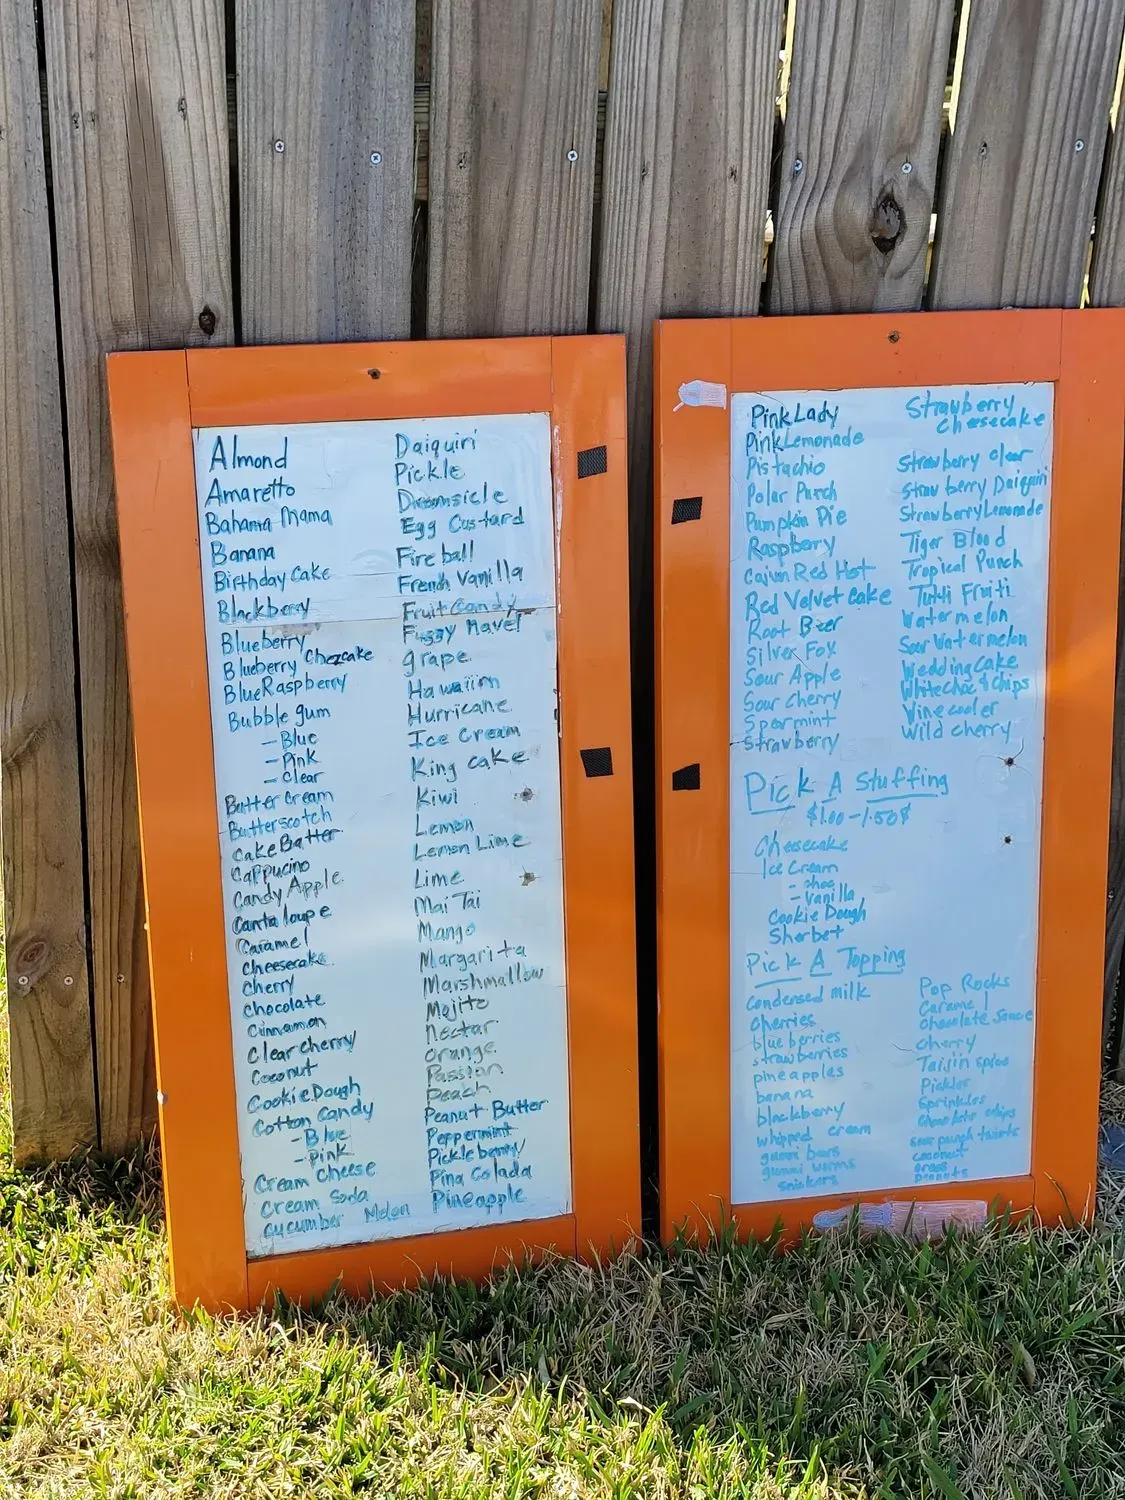 Almond
Amaretto
Bahama Mama
Banana
Birthday Cake
Blackberry
Blueberry
Blueberry Chezcake
BlueRaspberry
Bubble gum
- Blue
- Pink
- Clear
Butter Cream
Butterscotch
Cake Batter
Cappucino
Candy Apple
Cantaloupe
Caramel
Cheesecake
Cherry
Chocolate
Cinnamon
Clear Cherry
Coconut
Cookie Dough
Cotton Candy
- Blue
- Pink
Cream Cheese
Cream Soda
Cucumber Melon
Daiquiri
Pickle
Dreamsicle
Egg Custard
Fireball
French Vanilla
Fruit Candy
Fuzzy Navel
grape
Hawaiin
Hurricane
Ice Cream
King cake
Kiwi
Lemon
Lemon Lime
Lime
Mai Tai
Mango
Margarita
Marshmallow
Mojito
Nectar
Orange
Passion
Peach
Peanut Butter
Peppermint
Pickleberry
Pina Colada
Pineapple
Pink Lady
Pink Lemonade
Pistachio
Polar Punch
Pumpkin Pie
Raspberry
Cajun Red Hot
Red Velvet Cake
Root Beer
Silver Fox
Sour Apple
Sour Cherry
Spearmint
Strawberry
Strawberry
Cheesecake
Strawberry Clear
Strawberry Daiquiri
Strawberry Lemonade
Tiger Blood
Tropical Punch
Tutti Fruiti
Watermelon
Sour Watermelon
Wedding Cake
White choc & Chips
Vine cooler
Wild Cherry
Pick A Stuffing
$1.00 - 1.50$
Cheesecake
Ice Cream
- choc
- Vanilla
Cookie Dough
Sherbet
Pick A Topping
Condensed Milk
Cherries
blueberries
strawberries
pineapples
banana
blackberry
whipped cream
gummi bears
gummi worms
snickers
Pop Rocks
Caramel
Chocolate Sauce
Cherry
Tajin spice
Pickles
Sprinkles
Chocolate chips
sour punch twists
coconut
oreos
Peanuts